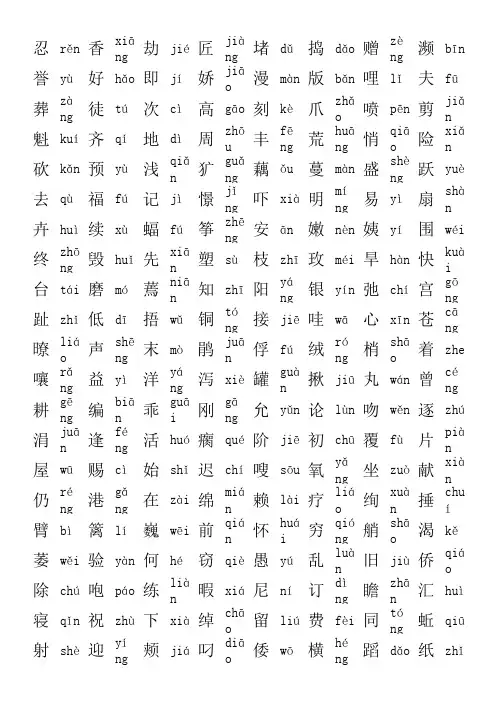 忍 rěn 香 xiāng 劫 jié 匠 jiàng 堵 dǔ 捣 dǎo 赠 zèng 濒 bīn
誉 yù 好 hǎo 即 jí 娇 jiāo 漫 màn 版 bǎn 哩 lǐ 夫 fū
葬 zàng 徒 tú 次 cì 高 gāo 刻 kè 爪 zhǎo 喷 pēn 剪 jiǎn
魁 kuí 齐 qí 地 dì 周 zhōu 丰 fēng 荒 huāng 悄 qiāo 险 xiǎn
砍 kǎn 预 yù 浅 qiǎn 犷 guǎng 藕 ǒu 蔓 màn 盛 shèng 跃 yuè
去 qù 福 fú 记 jì 憬 jǐng 吓 xià 明 míng 易 yì 扇 shàn
卉 huì 续 xù 蝠 fú 筝 zhēng 安 ān 嫩 nèn 姨 yí 围 wéi
终 zhōng 毁 huǐ 先 xiān 塑 sù 枝 zhī 玫 méi 旱 hàn 快 kuài
台 tái 磨 mó 蔫 niān 知 zhī 阳 yáng 银 yín 弛 chí 宫 gōng
趾 zhǐ 低 dī 捂 wǔ 铜 tóng 接 jiē 哇 wā 心 xīn 苍 cāng
暸 liáo 声 shēng 末 mò 鹃 juān 俘 fú 绒 róng 梢 shāo 着 zhe
嚷 rǎng 益 yì 洋 yáng 泻 xiè 罐 guàn 揪 jiū 丸 wán 曾 céng
耕 gēng 编 biān 乖 guāi 刚 gāng 允 yǔn 论 lùn 吻 wěn 逐 zhú
涓 juān 逢 féng 活 huó 瘸 qué 阶 jiē 初 chū 覆 fù 片 piàn
屋 wū 赐 cì 始 shǐ 迟 chí 嗖 sōu 氧 yǎng 坐 zuò 献 xiàn
仍 réng 港 gǎng 在 zài 绵 mián 赖 lài 疗 liáo 绚 xuàn 捶 chuí
臂 bì 篱 lí 巍 wēi 前 qián 怀 huái 穷 qióng 艄 shāo 渴 kě
萎 wěi 验 yàn 何 hé 窃 qiè 愚 yú 乱 luàn 旧 jiù 侨 qiáo
除 chú 咆 páo 练 liàn 暇 xiá 尼 ní 订 dìng 瞻 zhān 汇 huì
寝 qǐn 祝 zhù 下 xià 绰 chāo 留 liú 费 fèi 同 tóng 蚯 qiū
射 shè 迎 yíng 颊 jiá 叼 diāo 倭 wō 横 héng 蹈 dǎo 纸 zhǐ